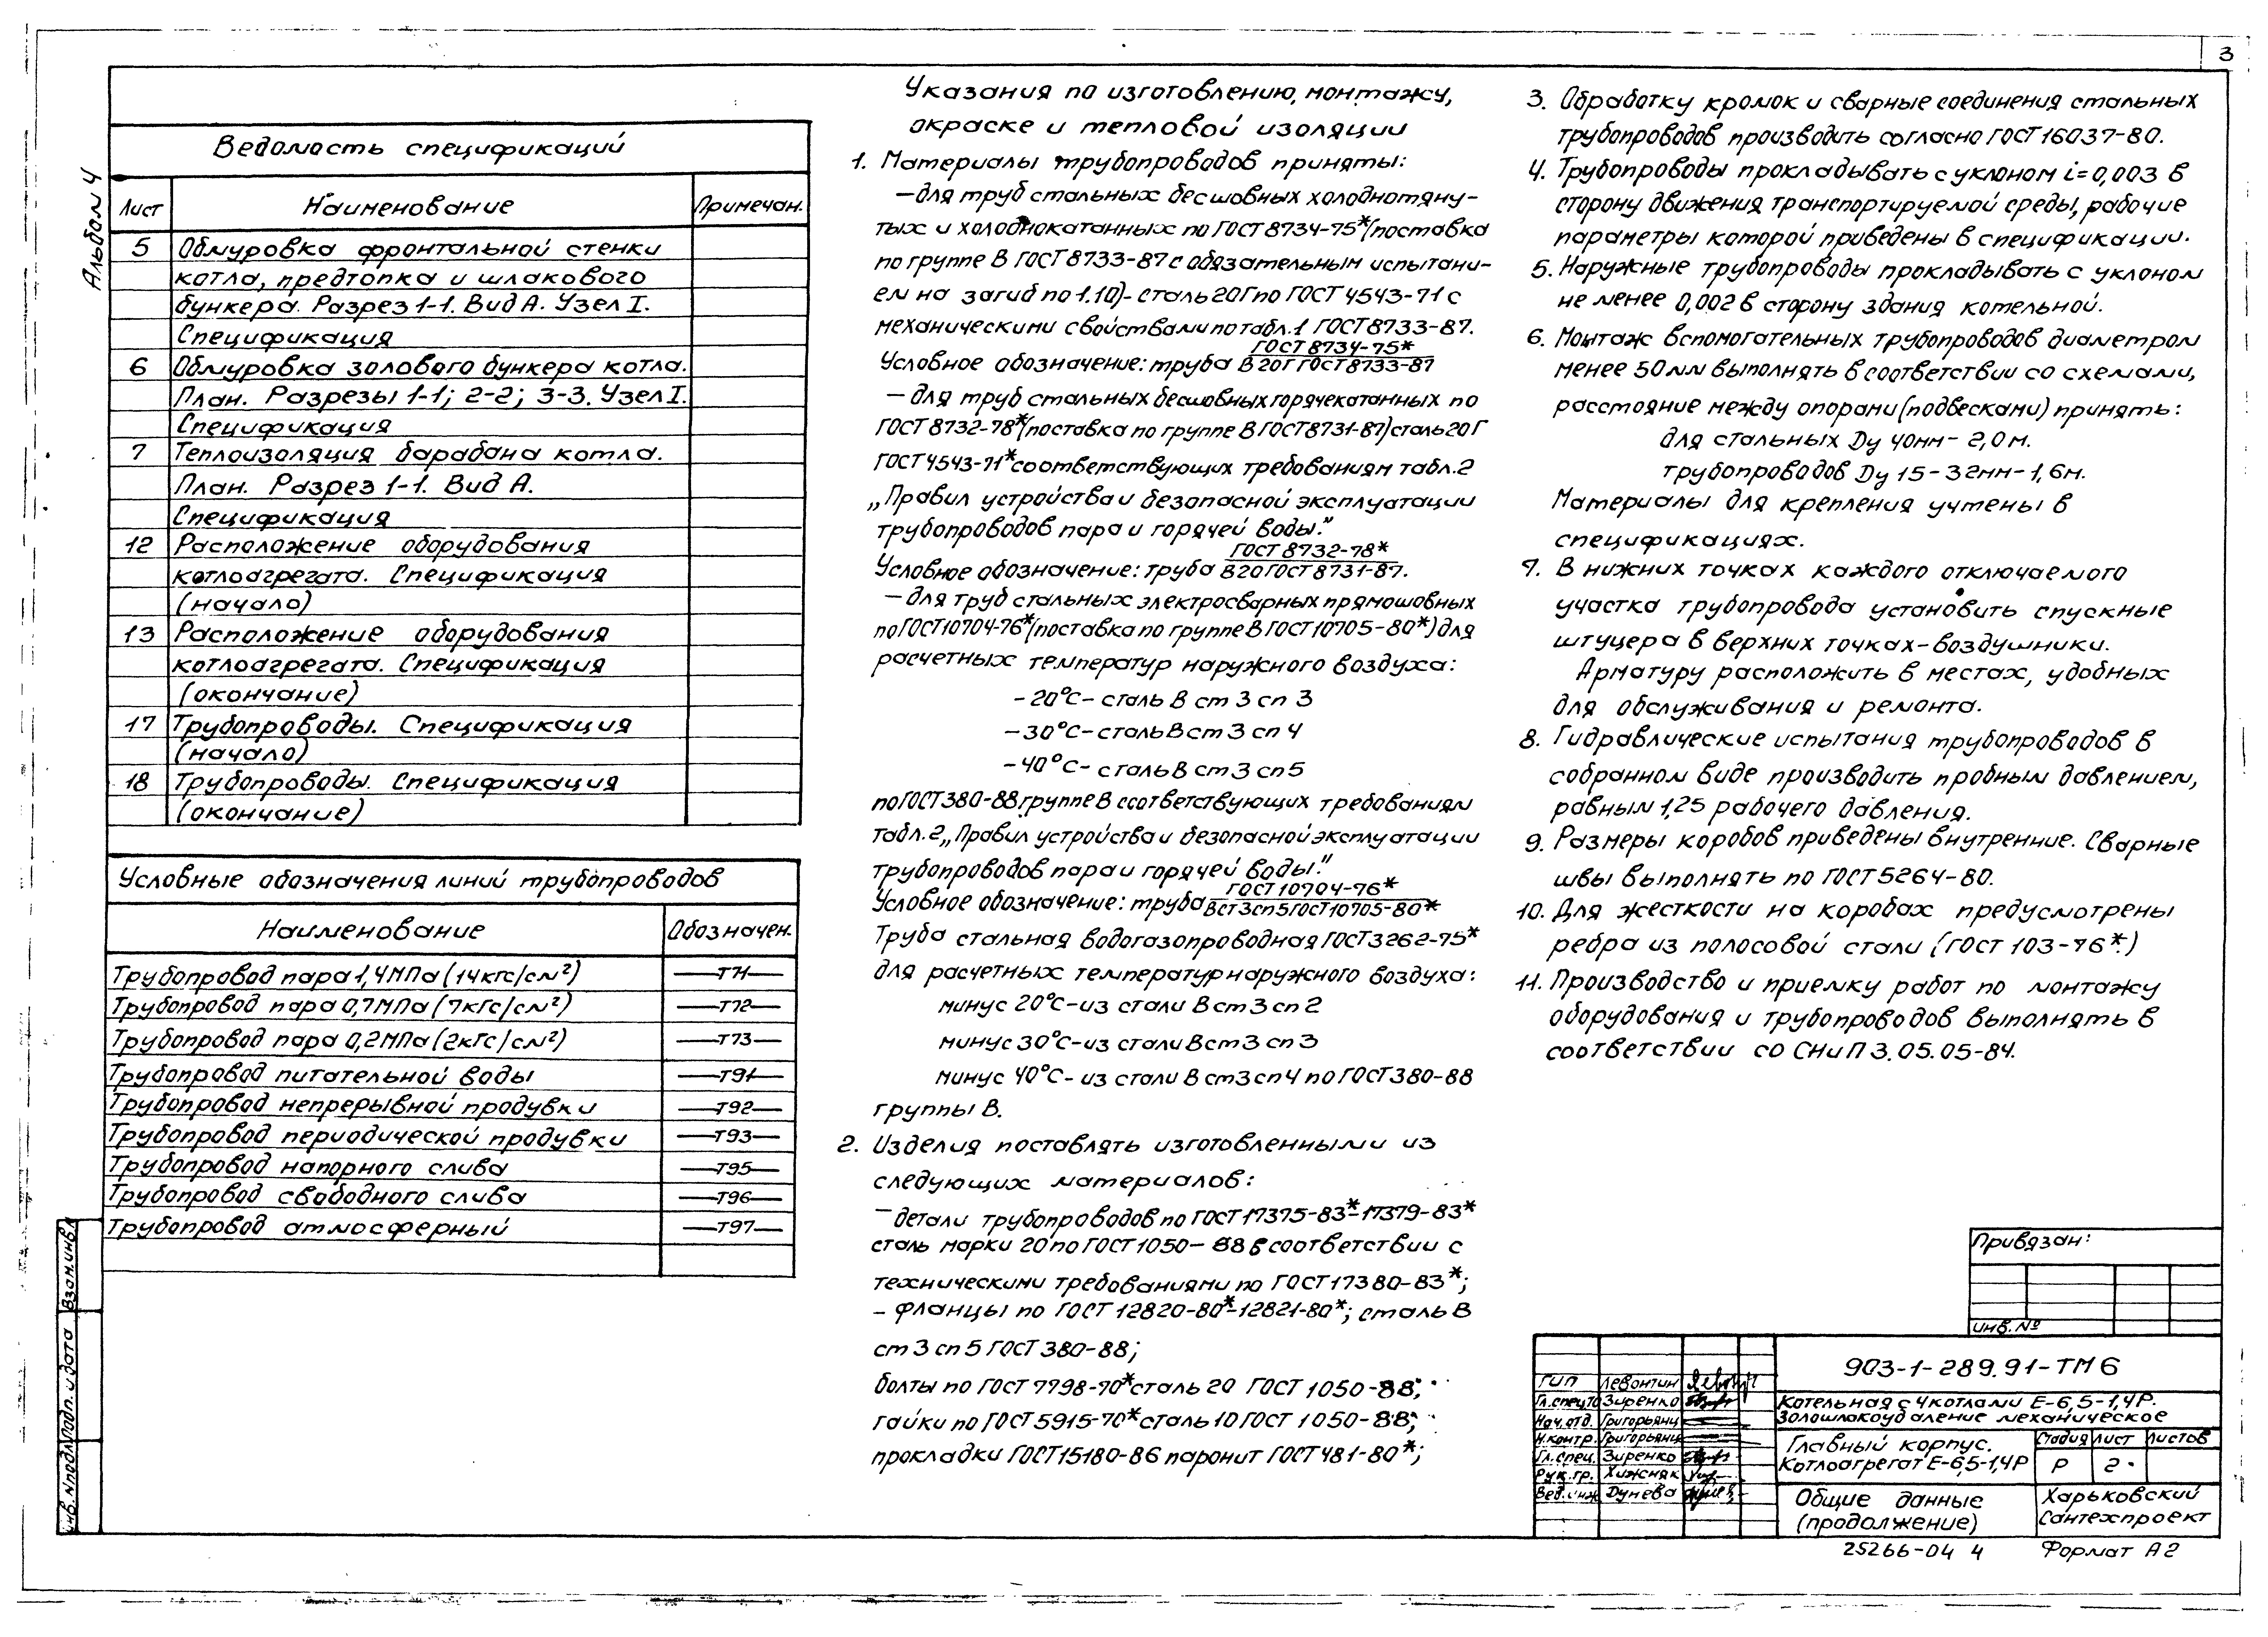 3
Альбом 4
Ведомость спецификаций
Лист Наименование Примечан.
5 Обмуровка фронтальной стенки
котла, предтопка и шлакового
бункера. Разрез 1-1. Вид А. Узел I.
Спецификация
6 Обмуровка золового бункера котла.
План. Разрезы 1-1; 2-2; 3-3. Узел I.
Спецификация
7 Теплоизоляция барабана котла.
План. Разрез 1-1. Вид А.
Спецификация
12 Расположение оборудования
котлоагрегата. Спецификация
(начало)
13 Расположение оборудования
котлоагрегата. Спецификация
(окончание)
17 Трубопроводы. Спецификация
(начало)
18 Трубопроводы. Спецификация
(окончание)
Условные обозначения линий трубопроводов
Наименование Обозначен.
Трубопровод пара 1,4МПа (14кгс/см²) —Т71—
Трубопровод пара 0,7МПа (7кгс/см²) —Т72—
Трубопровод пара 0,2МПа (2кгс/см²) —Т73—
Трубопровод питательной воды —Т91—
Трубопровод непрерывной продувки —Т92—
Трубопровод периодической продувки —Т93—
Трубопровод напорного слива —Т95—
Трубопровод свободного слива —Т96—
Трубопровод атмосферный —Т97—
Указания по изготовлению, монтажу,
окраске и тепловой изоляции
1. Материалы трубопроводов приняты:
—для труб стальных бесшовных холоднотяну-
тых и холоднокатанных по ГОСТ 8734-75* (поставка
по группе В ГОСТ 8733-87 с обязательным испытани-
ем на загиб по 1.10)- сталь 20Г по ГОСТ 4543-71 с
механическими свойствами по табл.1 ГОСТ 8733-87.
ГОСТ 8734-75*
Условное обозначение: труба В 20Г ГОСТ 8733-87
— для труб стальных бесшовных горячекатанных по
ГОСТ 8732-78* (поставка по группе В ГОСТ 8731-87) сталь 20Г
ГОСТ 4543-71* соответствующих требованиям табл.2
„Правил устройства и безопасной эксплуатации
трубопроводов пара и горячей воды."
ГОСТ 8732-78*
Условное обозначение: труба В20 ГОСТ 8731-87.
—для труб стальных электросварных прямошовных
по ГОСТ 10704-76* (поставка по группе В ГОСТ 10705-80*) для
расчетных температур наружного воздуха:
-20°С- сталь В ст 3 сп 3
-30°С- сталь В ст 3 сп 4
-40°С- сталь В ст 3 сп 5
по ГОСТ 380-88 группе В соответствующих требованиям
табл. 2 „Правил устройства и безопасной эксплуатации
трубопроводов пара и горячей воды."
ГОСТ 10704-76*
Условное обозначение: труба Вст3сп5 ГОСТ 10705-80*
Труба стальная водогазопроводная ГОСТ 3262-75*
для расчетных температур наружного воздуха:
минус 20°С-из стали В ст 3 сп 2
минус 30°С-из стали В ст 3 сп 3
минус 40°С- из стали В ст 3 сп 4 по ГОСТ 380-88
группы В.
2. Изделия поставлять изготовленными из
следующих материалов:
— детали трубопроводов по ГОСТ 17375-83*-17379-83*
сталь марки 20 по ГОСТ 1050-88 в соответствии с
техническими требованиями по ГОСТ 17380-83*;
- фланцы по ГОСТ 12820-80*-12821-80*; сталь В
ст 3 сп 5 ГОСТ 380-88;
болты по ГОСТ 7798-70* сталь 20 ГОСТ 1050-88;
гайки по ГОСТ 5915-70* сталь 10 ГОСТ 1050-88;
прокладки ГОСТ 15180-86 паронит ГОСТ 481-80*;
3. Обработку кромок и сварные соединения стальных
трубопроводов производить согласно ГОСТ 16037-80.
4. Трубопроводы прокладывать с уклоном i=0,003 в
сторону движения транспортируемой среды, рабочие
параметры которой приведены в спецификации.
5. Наружные трубопроводы прокладывать с уклоном
не менее 0,002 в сторону здания котельной.
6. Монтаж вспомогательных трубопроводов диаметром
менее 50мм выполнять в соответствии со схемами,
расстояние между опорами (подвесками) принять:
для стальных Ду 40мм- 2,0 м.
трубопроводов Ду 15-32мм-1,6м.
Материалы для крепления учтены в
спецификациях.
7. В нижних точках каждого отключаемого
участка трубопровода установить спускные
штуцера в верхних точках-воздушники.
Арматуру расположить в местах, удобных
для обслуживания и ремонта.
8. Гидравлические испытания трубопроводов в
собранном виде производить пробным давлением,
равным 1,25 рабочего давления.
9. Размеры коробов приведены внутренние. Сварные
швы выполнять по ГОСТ 5264-80.
10. Для жесткости на коробах предусмотрены
ребра из полосовой стали (ГОСТ 103-76*.)
11. Производство и приемку работ по монтажу
оборудования и трубопроводов выполнять в
соответствии со СНиП 3.05.05-84.
Привязан:
Инв. №
903-1-289.91-ТМ6
Котельная с 4 котлами Е-6,5-1,4Р.
Золошлакоудаление механическое
ГИП Левонтин
Гл.спец.ТО Зиренко
Нач.отд. Григорьянц
Н.контр. Григорьянц
Гл.спец. Зиренко
Рук.гр. Хижсняк
Вед.инж Дунева
Главный корпус.
Котлоагрегат Е-6,5-1,4Р
Стадия Лист Листов
Р 2
Общие данные
(продолжение)
Харьковский
Сантехпроект
25266-04 4 Формат А2
Инв.№подл. Подп. и дата Взам.инв.